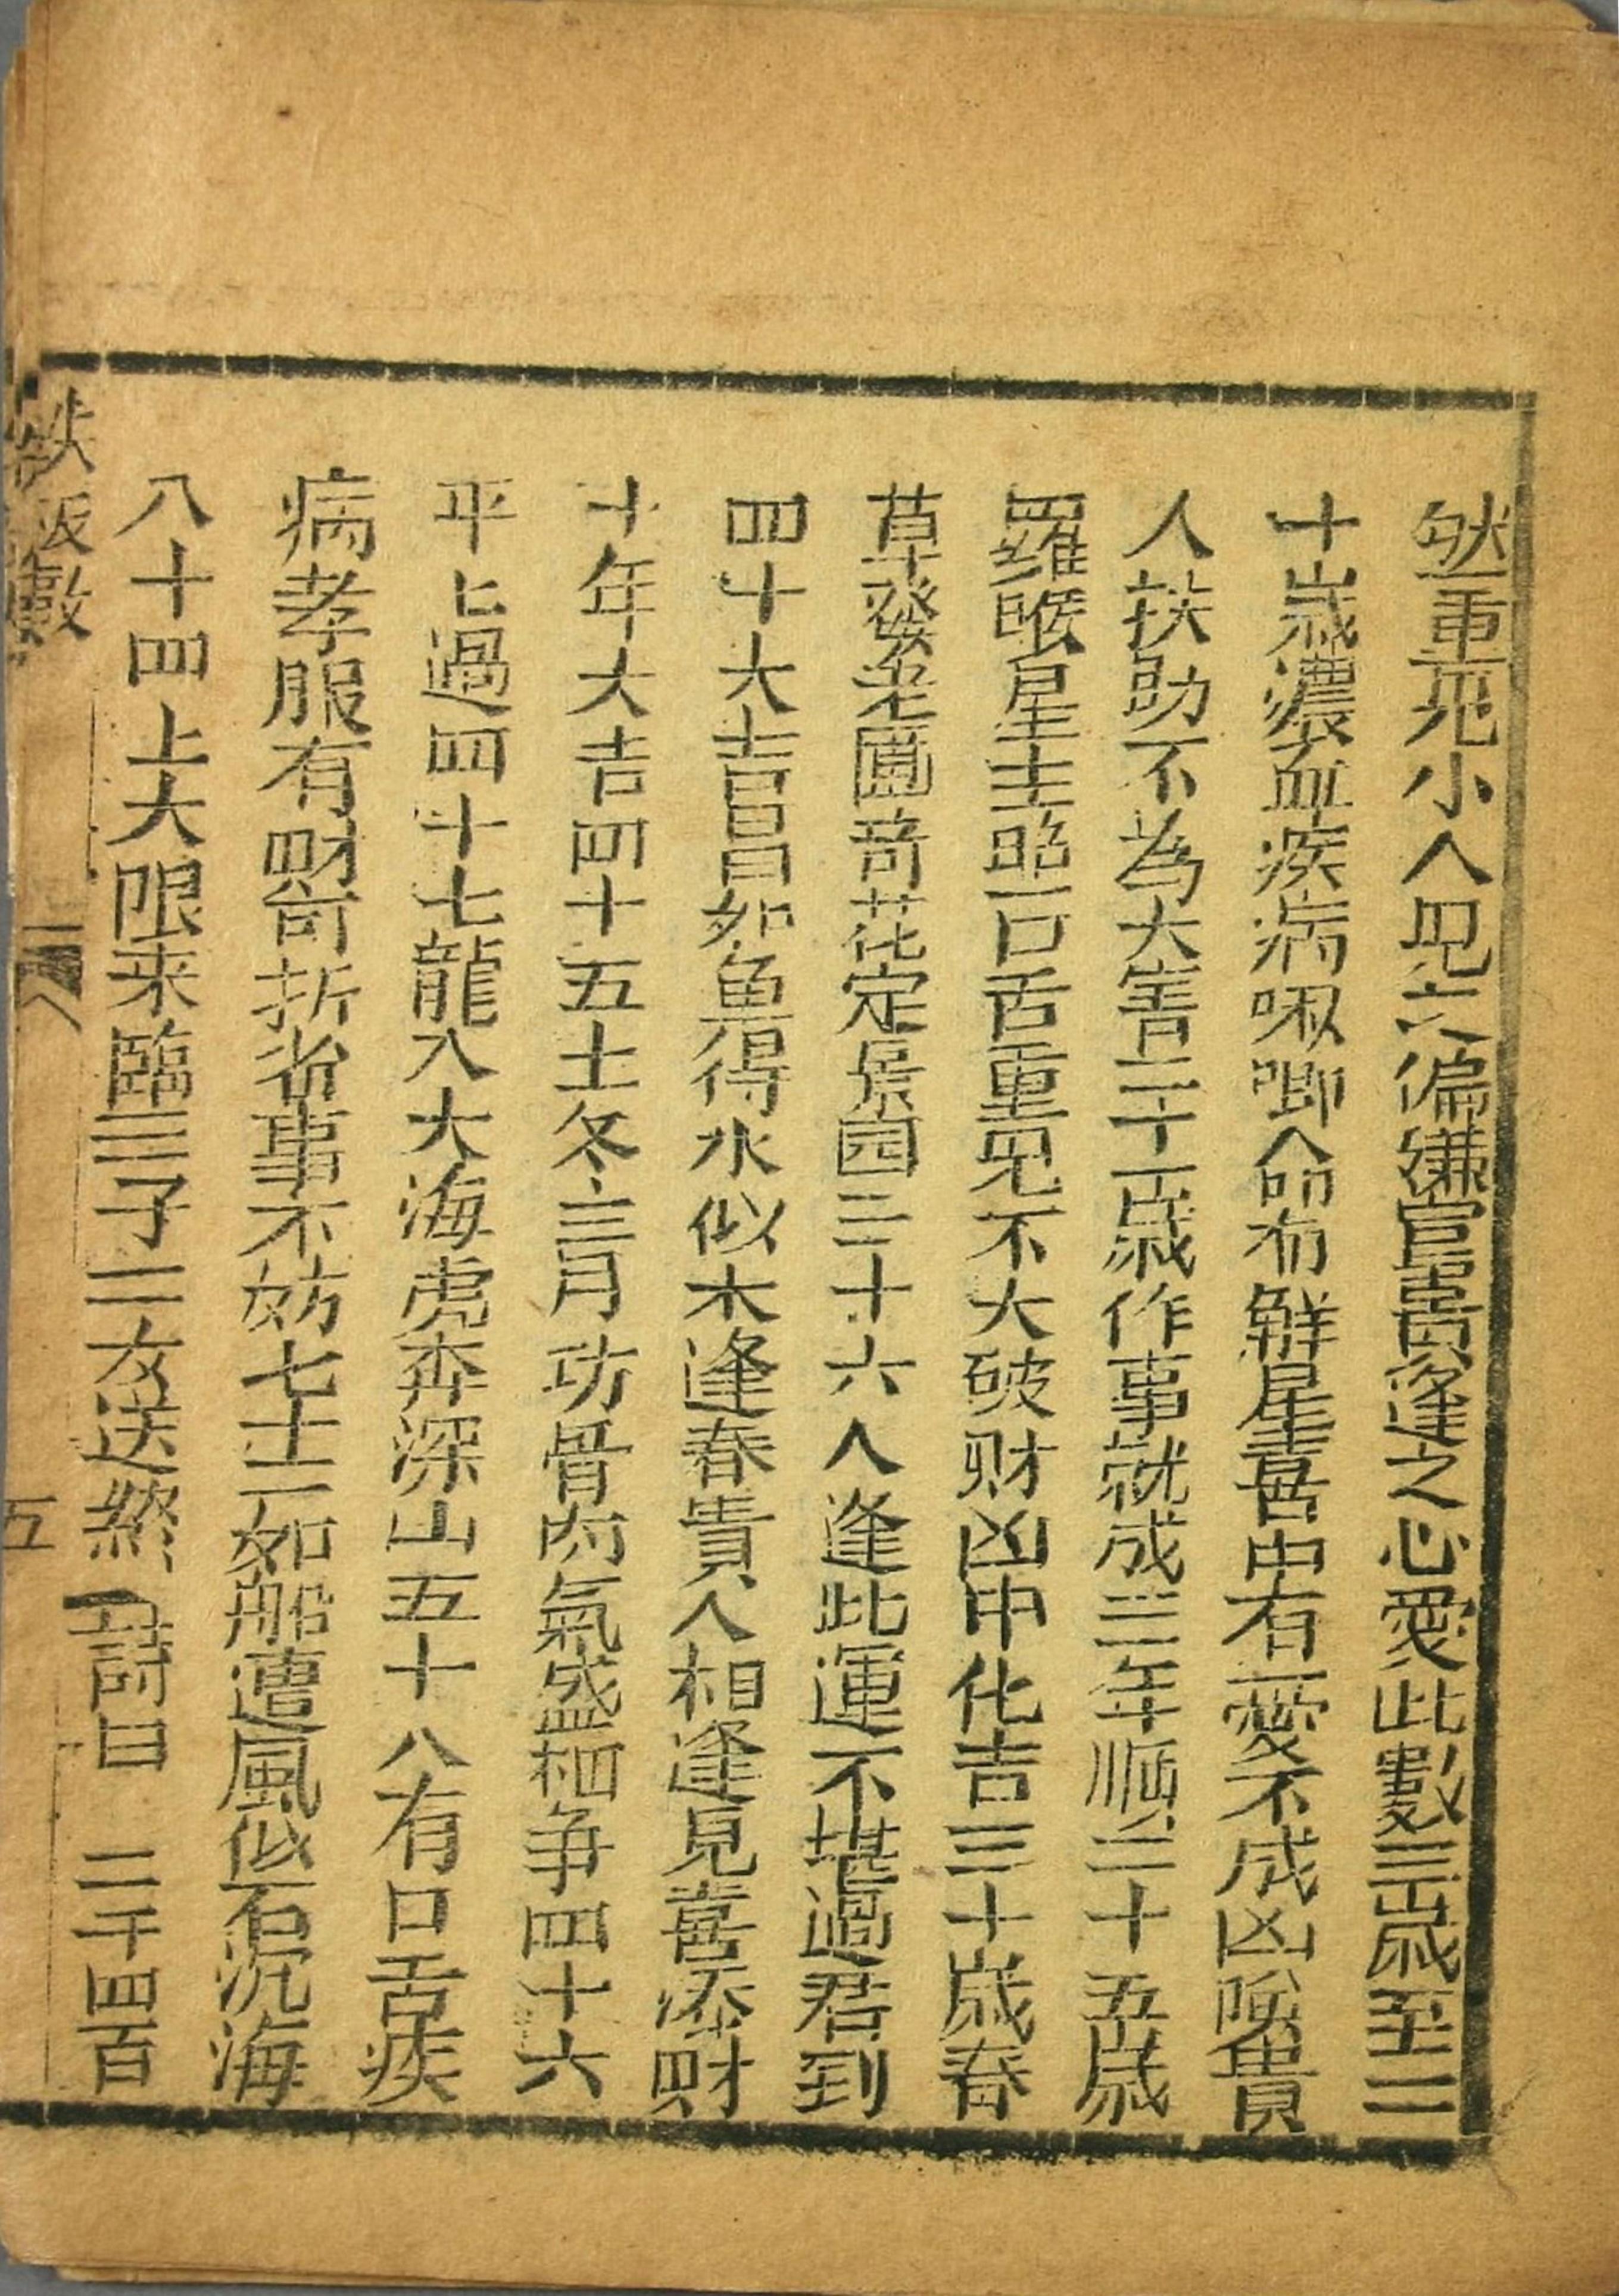 然重見小人見六偏嫌官貴逢之心愛此數三歲至二
十歲濃血疾病啾唧命有解星喜中有憂不成凶險貴
人扶助不為大害二十一歲作事就成三年順二十五歲
羅睺星主照口舌重見不大破财凶中化吉三十歲春
草發老圃奇花定景园三十六人逢此運不堪過君到
四十大吉昌如魚得水似木逢春貴人相逢見喜添财
十年大吉四十五上冬三月功骨肉氣盛相争四十六
平上過四十七龍入大海虎奔深山五十八有口舌疾
病孝服有财可折省事不妨七十一如船遭風似石沉海
八十四上大限来臨三子二女送終 詩曰 二千四百
鉄板數 五